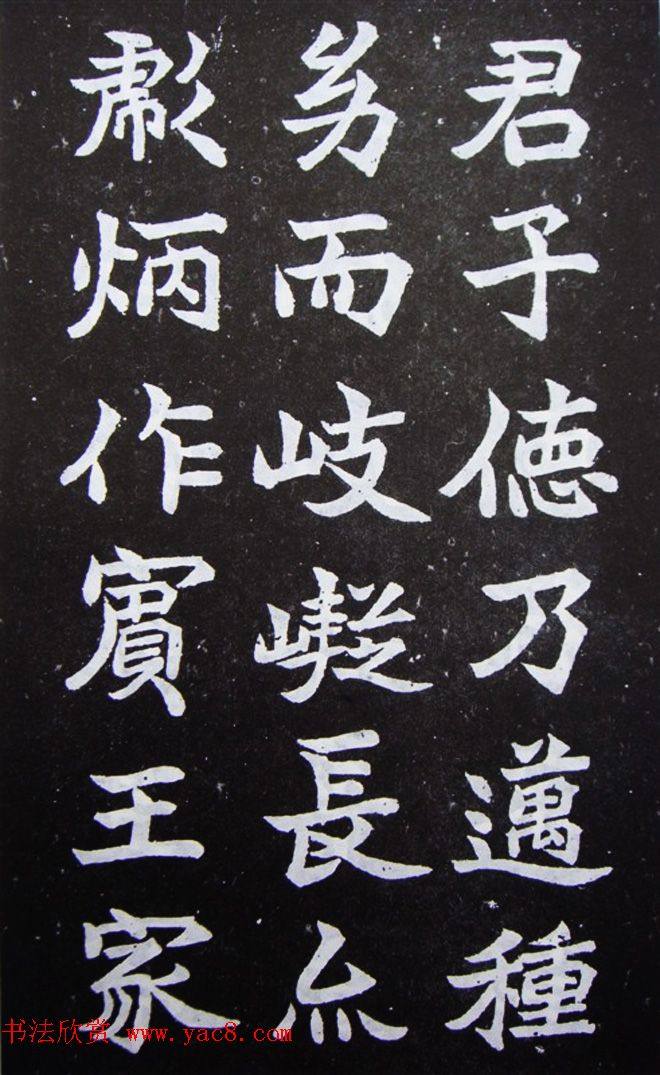 君子德乃邁種
幼而岐嶷長亦
彪炳作賓王家
书法欣赏 www.yac8.com